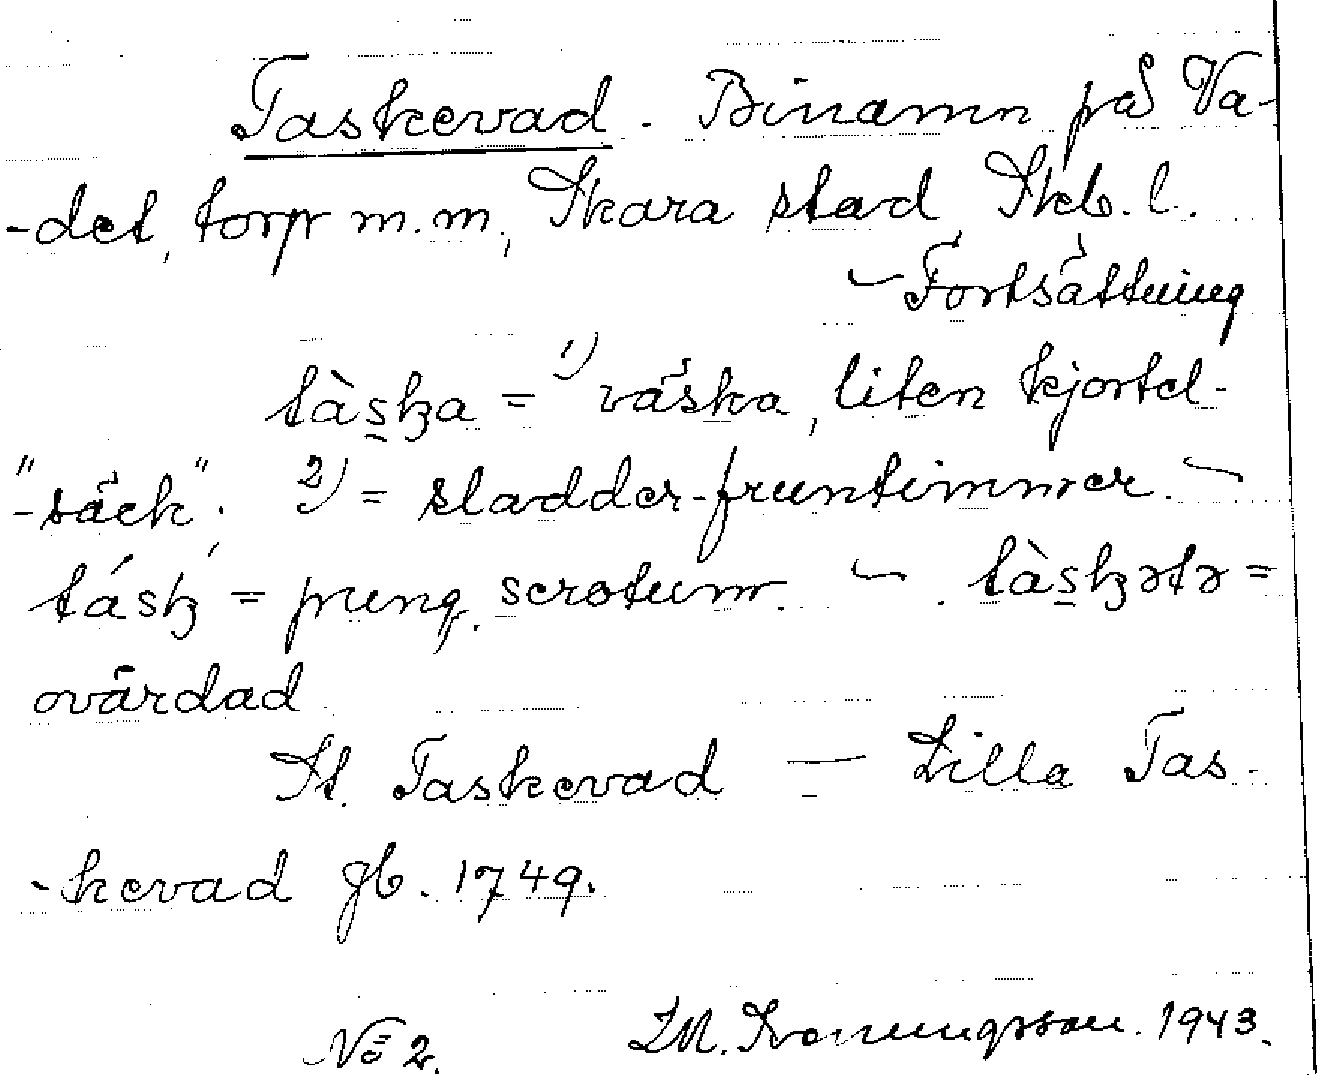 Taskevad. Binamn på Va-
-det, torp m.m., Skara stad Skb. l.
– Fortsättning
tàşka = 1) väska, liten kjortel-
-"säck". 2) = sladder-fruntimmer. –
tásk = pung, scrotum. – tàşkətə =
ovårdad
St. Taskevad — Lilla Tas-
-kevad gb. 1749.
No 2. 1943.